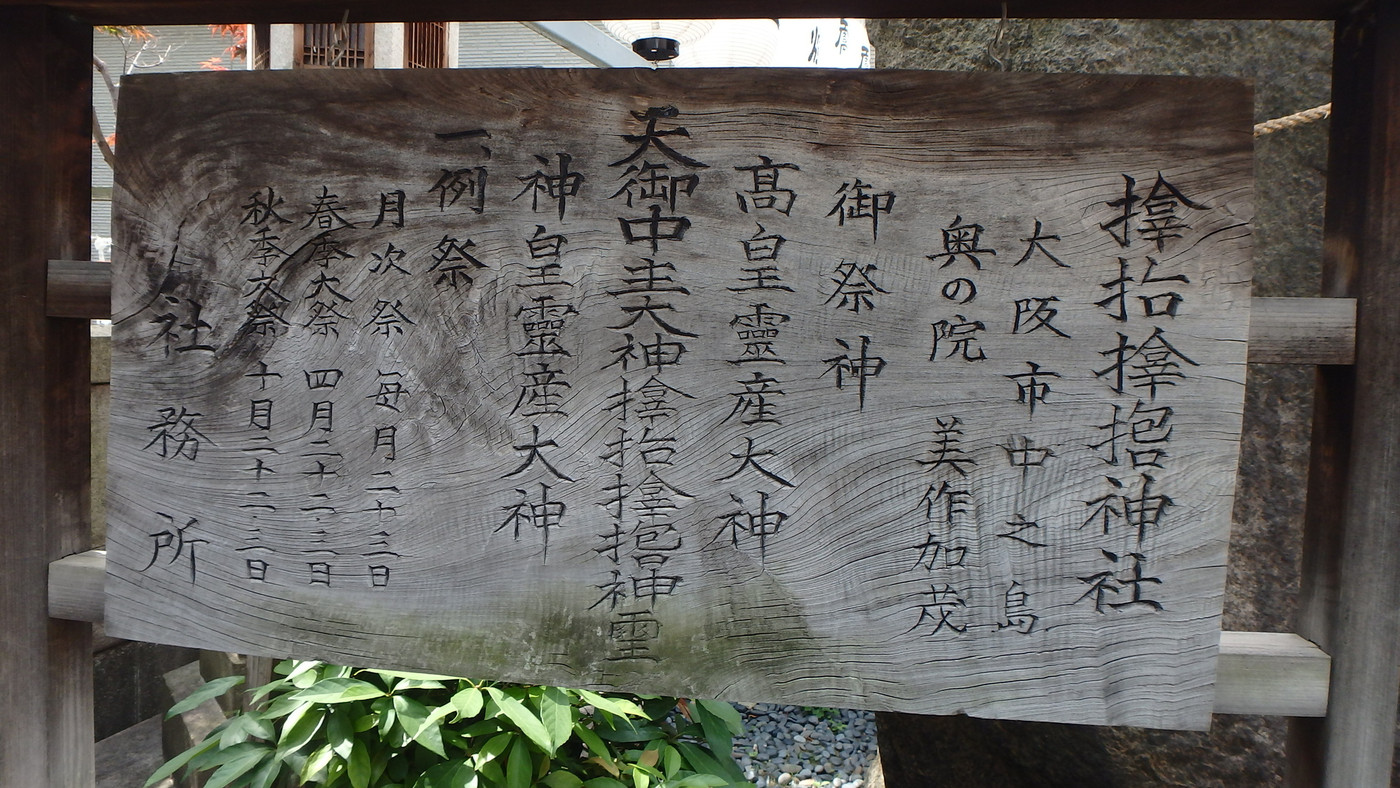 𪮷抬𪮷𪮇神社
大阪市中之島
奥の院 美作加茂
御祭神
髙皇靈産大神
天御中主大神𪮷抬𪮷𪮇神
神皇靈産大神
一、例祭
月次祭 毎月二十三日
春季大祭 四月二十二・三日
秋季大祭 十月二十二・三日
社務所